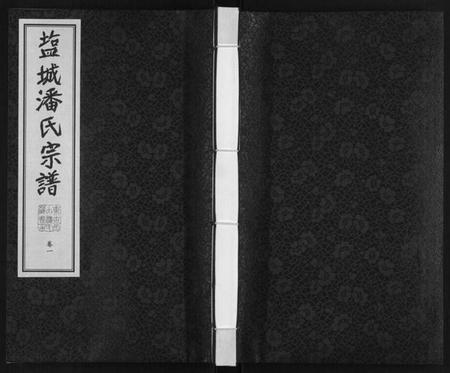 盐城潘氏宗譜
卷一